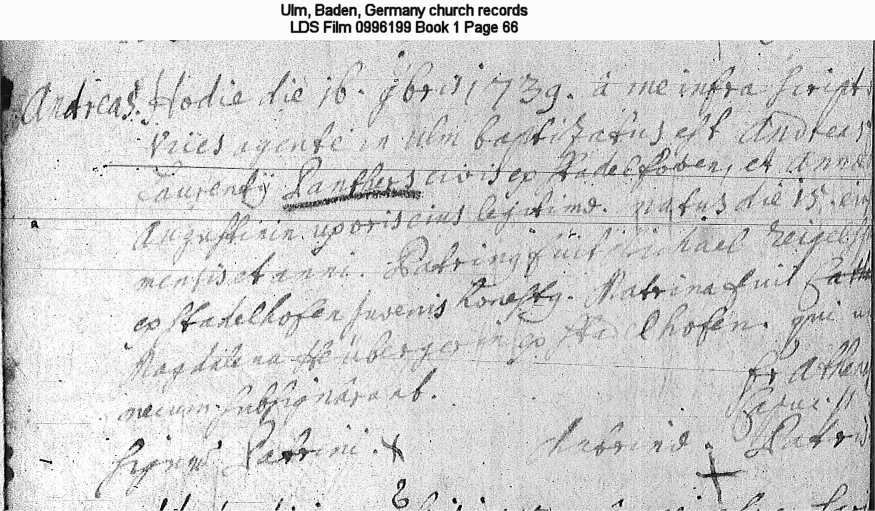 Ulm, Baden, Germany church records
LDS Film 0996199 Book 1 Page 66
Andreas. Hodie die 16. 9bris 1739. à me infra script
vices agente in Ulm baptizatus est Andreas
Laurentij Panthers civis ex Stadelhoven, et Anna
Augustinin uxoris eius legitimae. natus die 15. eiu
mensis et anni. Patrinus fuit Michael
ex Stadelhofen Juvenis honestus. Matrina fuit
Magdalena Heübergerin ex Stadelhofen. qui
mecum subsignarunt.
fr Athan
Capuci
Signum Patrini. + Matrinae. + Patris